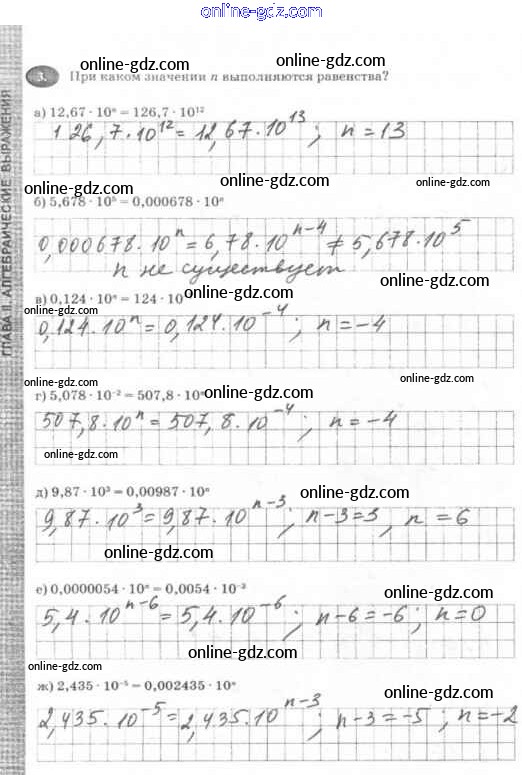 online-gdz.com online-gdz.com
online-gdz.com
3. При каком значении n выполняются равенства?
online-gdz.com
online-gdz.com
а) 12,67 · 10ⁿ = 126,7 · 10¹²
126,7 · 10¹² = 12,67 · 10¹³; n = 13
online-gdz.com
online-gdz.com
online-gdz.com
б) 5,678 · 10⁵ = 0,000678 · 10ⁿ
online-gdz.com
0,000678 · 10ⁿ = 6,78 · 10ⁿ⁻⁴ ≠ 5,678 · 10⁵
n не существует
online-gdz.com
в) 0,124 · 10ⁿ = 124 · 10
online-gdz.com
online-gdz.com
0,124 · 10ⁿ = 0,124 · 10⁻⁴; n = −4
online-gdz.com
online-gdz.com
г) 5,078 · 10⁻² = 507,8 · 10ⁿ
online-gdz.com
507,8 · 10ⁿ = 507,8 · 10⁻⁴; n = −4
online-gdz.com
online-gdz.com
д) 9,87 · 10³ = 0,00987 · 10ⁿ
online-gdz.com
9,87 · 10³ = 9,87 · 10ⁿ⁻³; n−3=3, n = 6
online-gdz.com
online-gdz.com
е) 0,0000054 · 10ⁿ = 0,0054 · 10⁻³
online-gdz.com
5,4 · 10ⁿ⁻⁶ = 5,4 · 10⁻⁶; n−6=−6; n=0
online-gdz.com
online-gdz.com
ж) 2,435 · 10⁻⁵ = 0,002435 · 10ⁿ
online-gdz.com
2,435 · 10⁻⁵ = 2,435 · 10ⁿ⁻³; n−3=−5; n=−2
online-gdz.com
online-gdz.com
ГЛАВА II. АЛГЕБРАИЧЕСКИЕ ВЫРАЖЕНИЯ